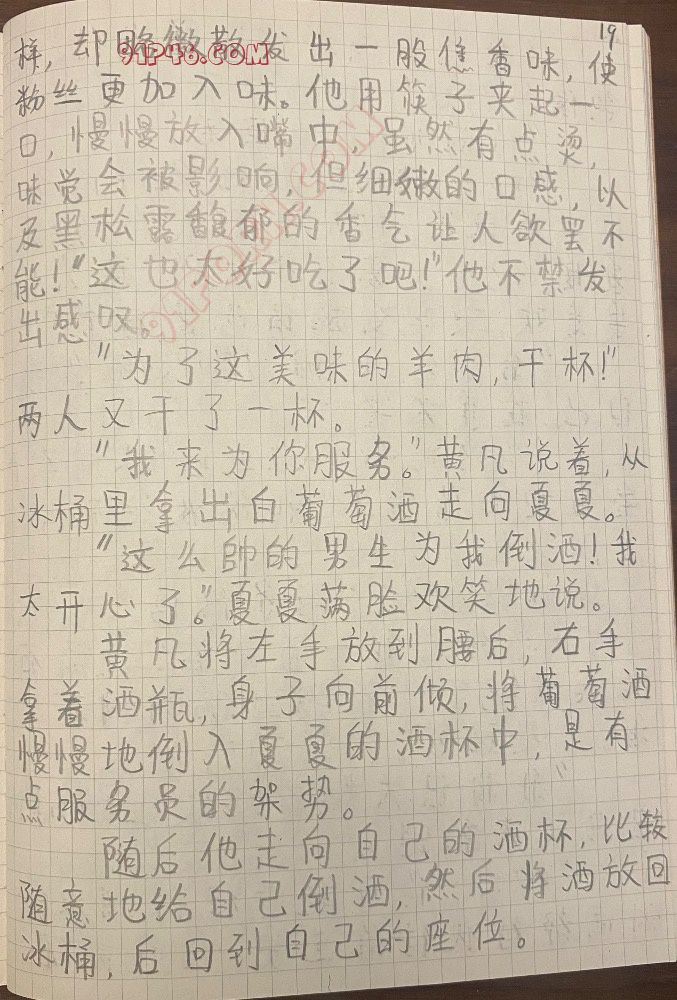 19
样，却略微散发出一股焦香味，使
粉丝更加入味。他用筷子夹起一
口，慢慢放入嘴中，虽然有点烫，
味觉会被影响，但细嫩的口感，以
及黑松露馥郁的香气让人欲罢不
能！“这也太好吃了吧！”他不禁发
出感叹。
“为了这美味的羊肉，干杯！”
两人又干了一杯。
“我来为你服务。”黄凡说着，从
冰桶里拿出白葡萄酒走向夏夏。
“这么帥的男生为我倒酒！我
太开心了。”夏夏满脸欢笑地说。
黄凡将左手放到腰后，右手
拿着酒瓶，身子向前倾，将葡萄酒
慢慢地倒入夏夏的酒杯中，是有
点服务员的架势。
随后他走向自己的酒杯，比较
随意地给自己倒酒，然后将酒放回
冰桶，后回到自己的座位。